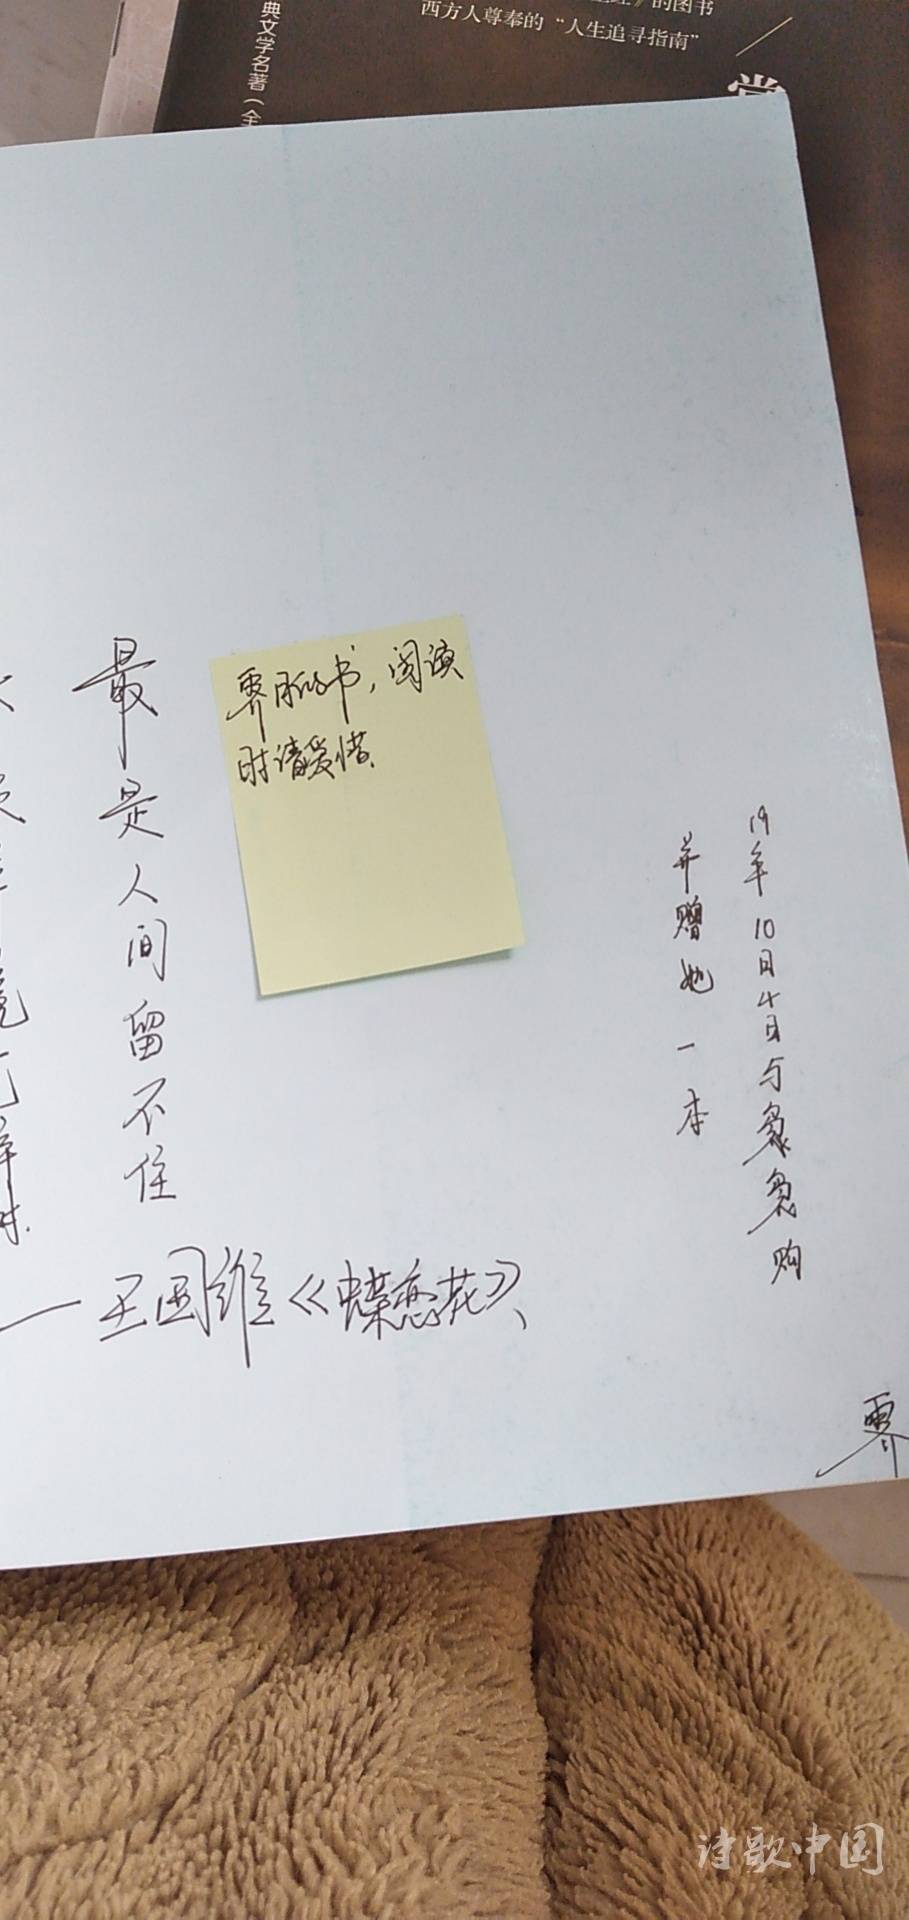 》的图书
西方人尊奉的“人生追寻指南”
典文学名著（全
最是人间留不住
霁的书，阅读
时请爱惜、
19年10日4日与
购
并赠她一本
—王国维《蝶恋花》、
霁
诗歌中国